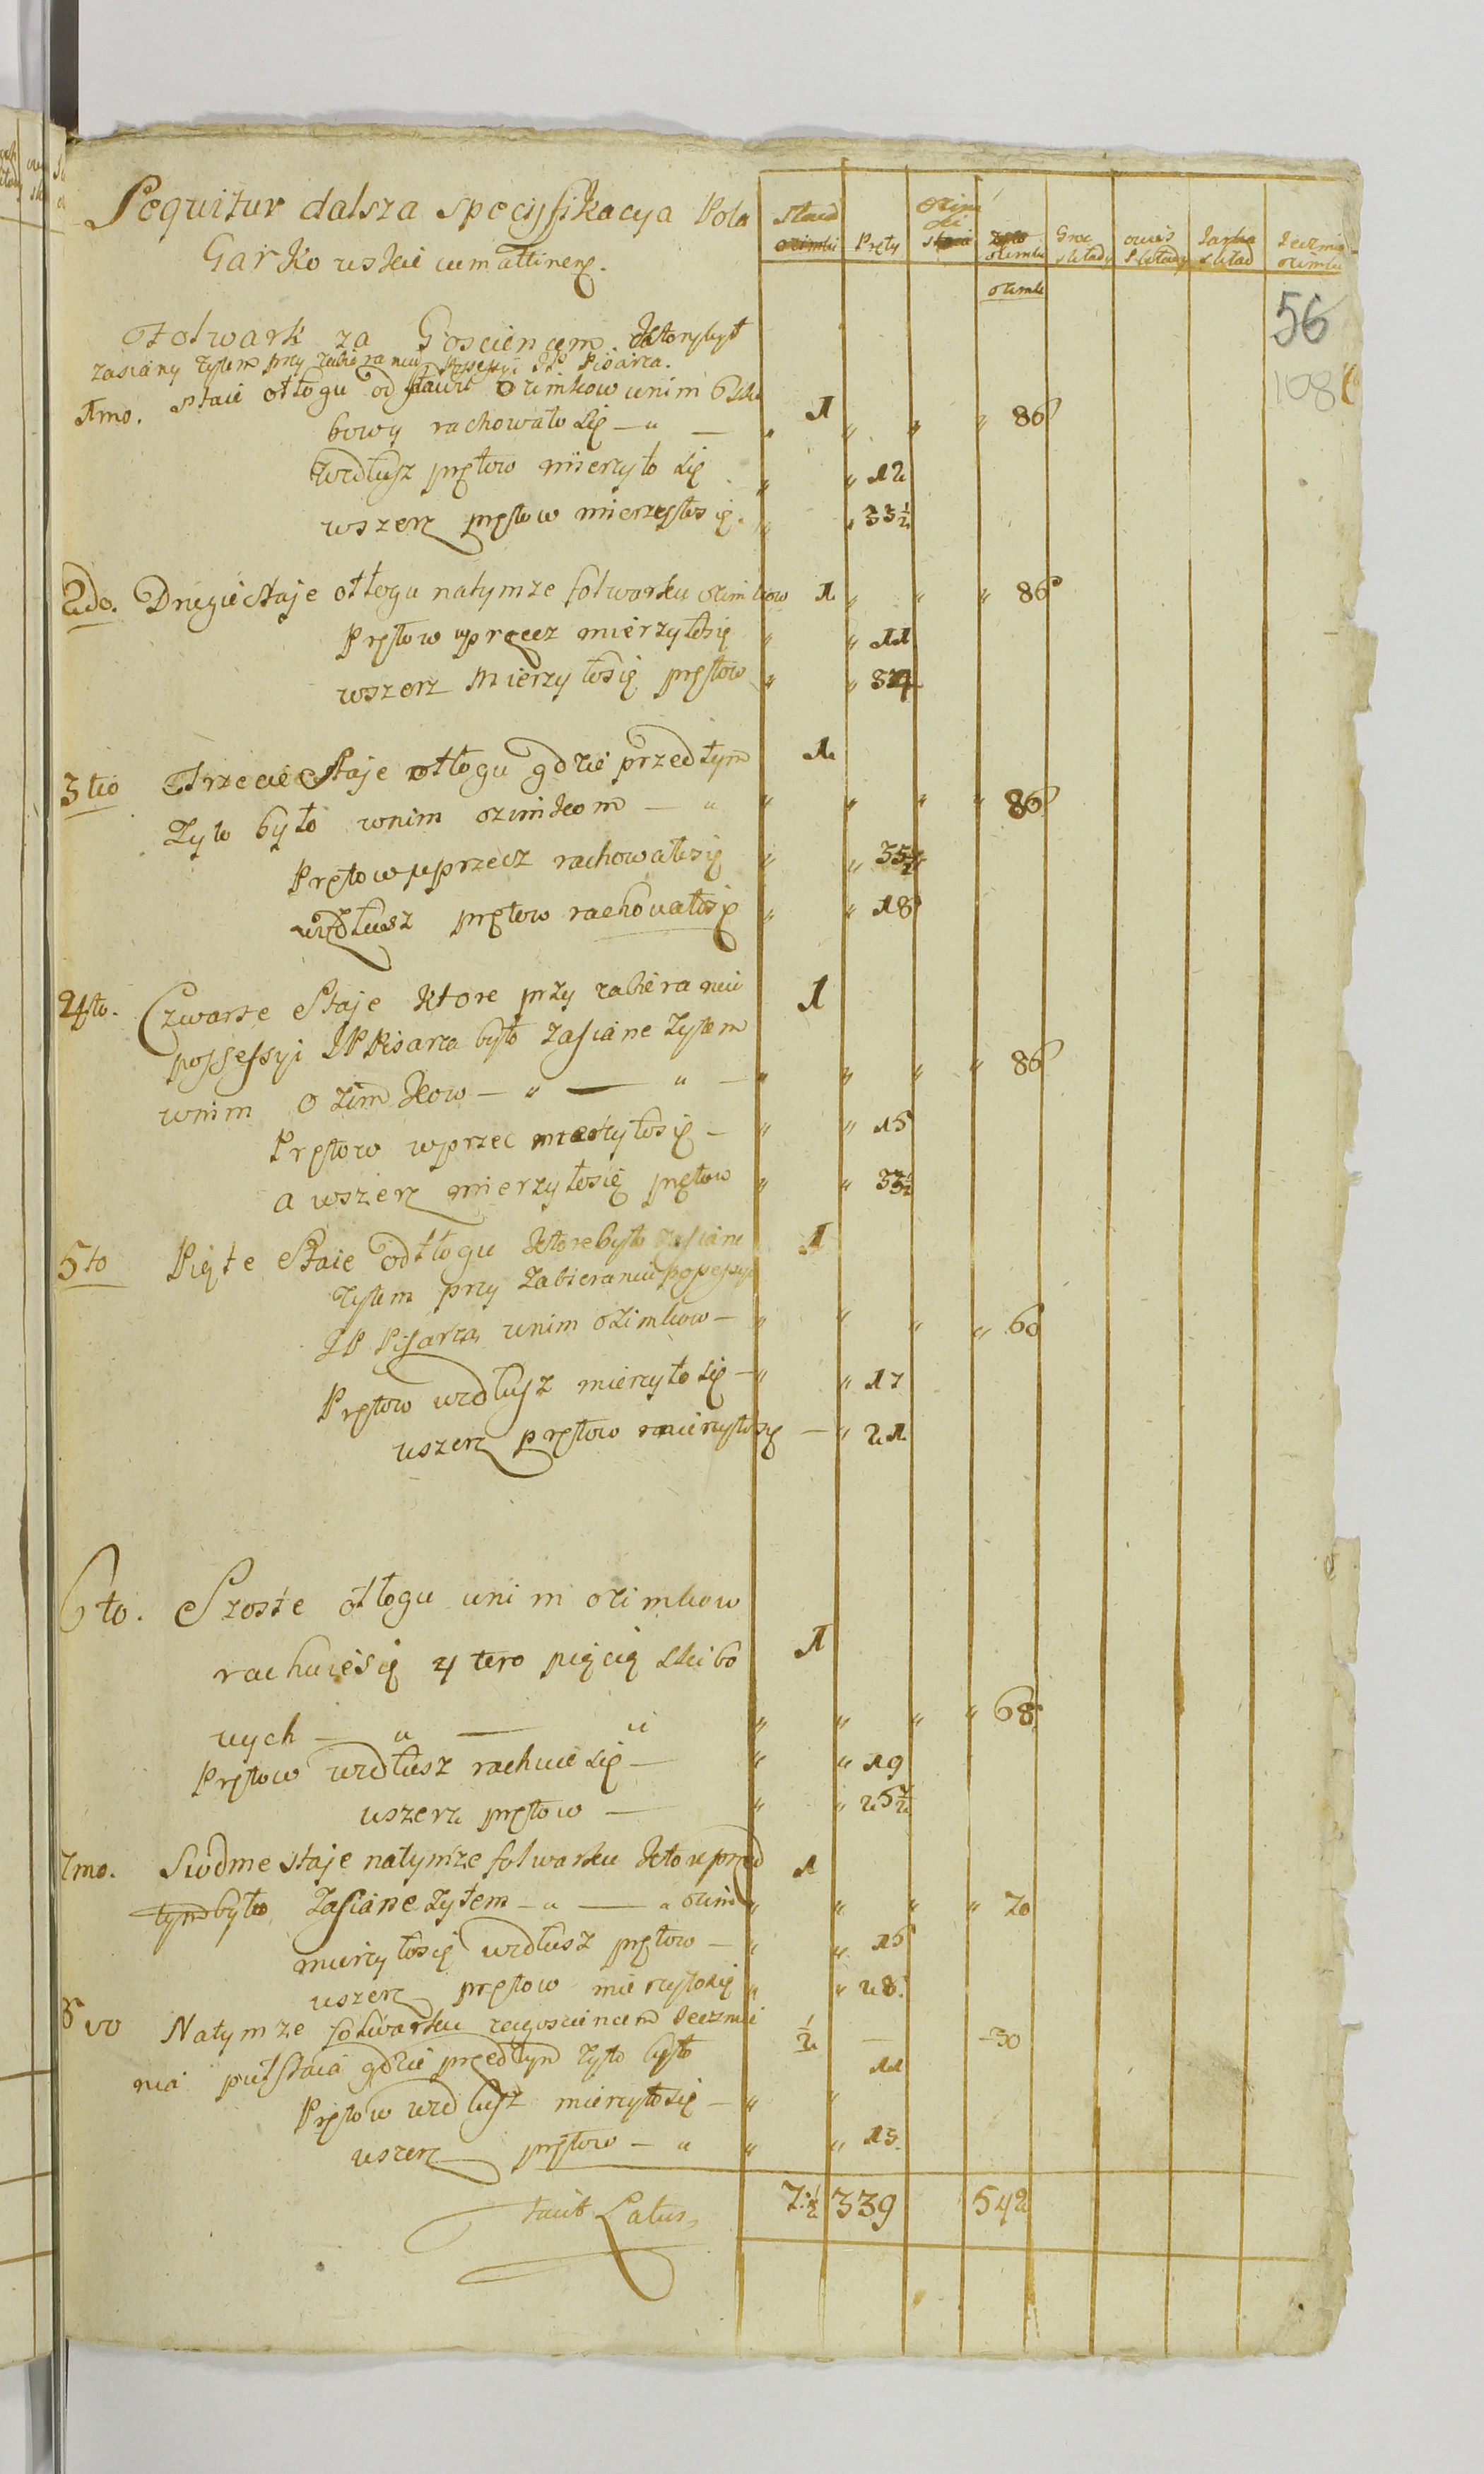 Sequitur dalsza specyfikacya Pola
Garkowskie cum attinen.
Staie ozimki Pręty Ozimki staia Zyto ozimki Groc składy owies składy Jarka skład Jeczmie ozimki
ozimki
56
108
Folwark za Goscincem. Ktory był
zasiany zytem przy zabieraniu Possessyi JP Pisarza.
1mo. staie otłogu od stawu ozimkow wnim 6 ski 1
bowy rachowało się — " — " " " " 86
Wzdłusz prętow mierzyło się " " 12
wszerz prętow mierzyło się. " " 33½
2do. Drugie staje otłogu natymze folwarku ozimkow 1 " " " 86
Prętow wprzecz mierzyłosię " " 11
wszerz mierzyłosię prętow " " 34
3tio Trzecie staje otłogu gdzie przedtym 1
Zyto było wnim ozimkow — " " " " " 86
Prętow wprzecz rachowałosię " " 35½
wzdłusz prętow rachowałosię " " 18
4to. Czwarte Staje ktore przy zabieraniu 1
possessyi JP Pisarza było zasiane Zytem
wnim ozimkow — " — " — " " " " 86
Prętow wprzec mierzyłosię — " " 15
a wszerz mierzyłosię prętow " " 33½
5to Piąte Staie odłogu ktore było zasiane 1
zytem przy zabieraniu possessyi
JP Pisarza wnim ozimkow — " " " " 60
Prętow wzdłusz mierzyło się — " " 17
wszerz prętow mierzyłosię — " 21
6to. Szoste otłogu wnim ozimkow
rachuiesię 4tero pięcią skibo 1
wych — " — " " " " " 68
Prętow wzdłusz rachuie się — " " 19
wszerz prętow — " " 25½
7mo. Siodme staje natymze folwarku ktore przed 1
tym było zasiane zytem — " — " ozim " " " " 70
mierzyłosię wzdłusz prętow — " " 15
wszerz prętow mierzyłosię " " 28.
8vo Natymze folwarku za goscincem Jeczmie ½ — — 30
nia pułstaia gdzie przedtym zyto było 11
Prętow wzdłusz mierzyłosię — " "
wszerz prętow — " " " 13.
facit Latus 7½ 339 542